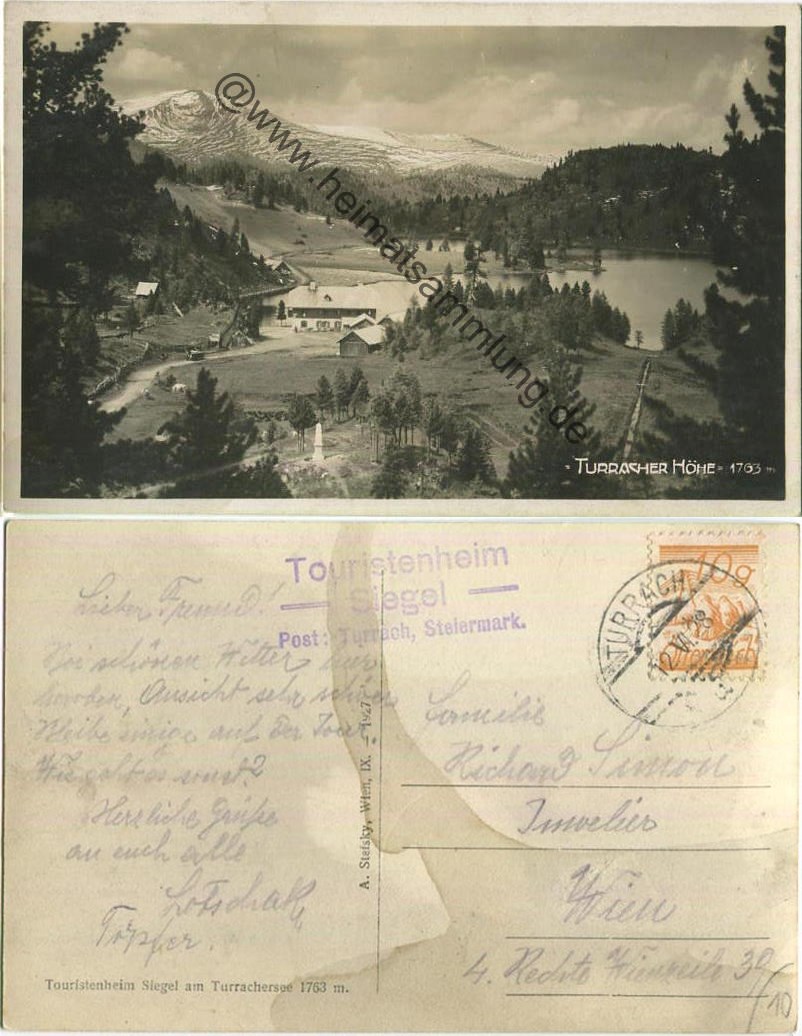 @www.heimatsammlung.de
= TURRACHER HÖHE = 1763 m
Touristenheim
— Siegel —
Post: Turrach, Steiermark.
10g
Österreich
TURRACH
2.VI.28
Lieber Freund!
Bei schönen Wetter
Ansicht sehr schön
Bleibe einige auf der Tour
Wie geht es sonst?
Herzliche Grüße
an euch alle
Töpfer.
A. Stefsky, Wien, IX. – 1927
Familie
Richard Simon
Juwelier
Wien
4. Rechte Wienzeile 30
/10
Touristenheim Siegel am Turrachersee 1763 m.